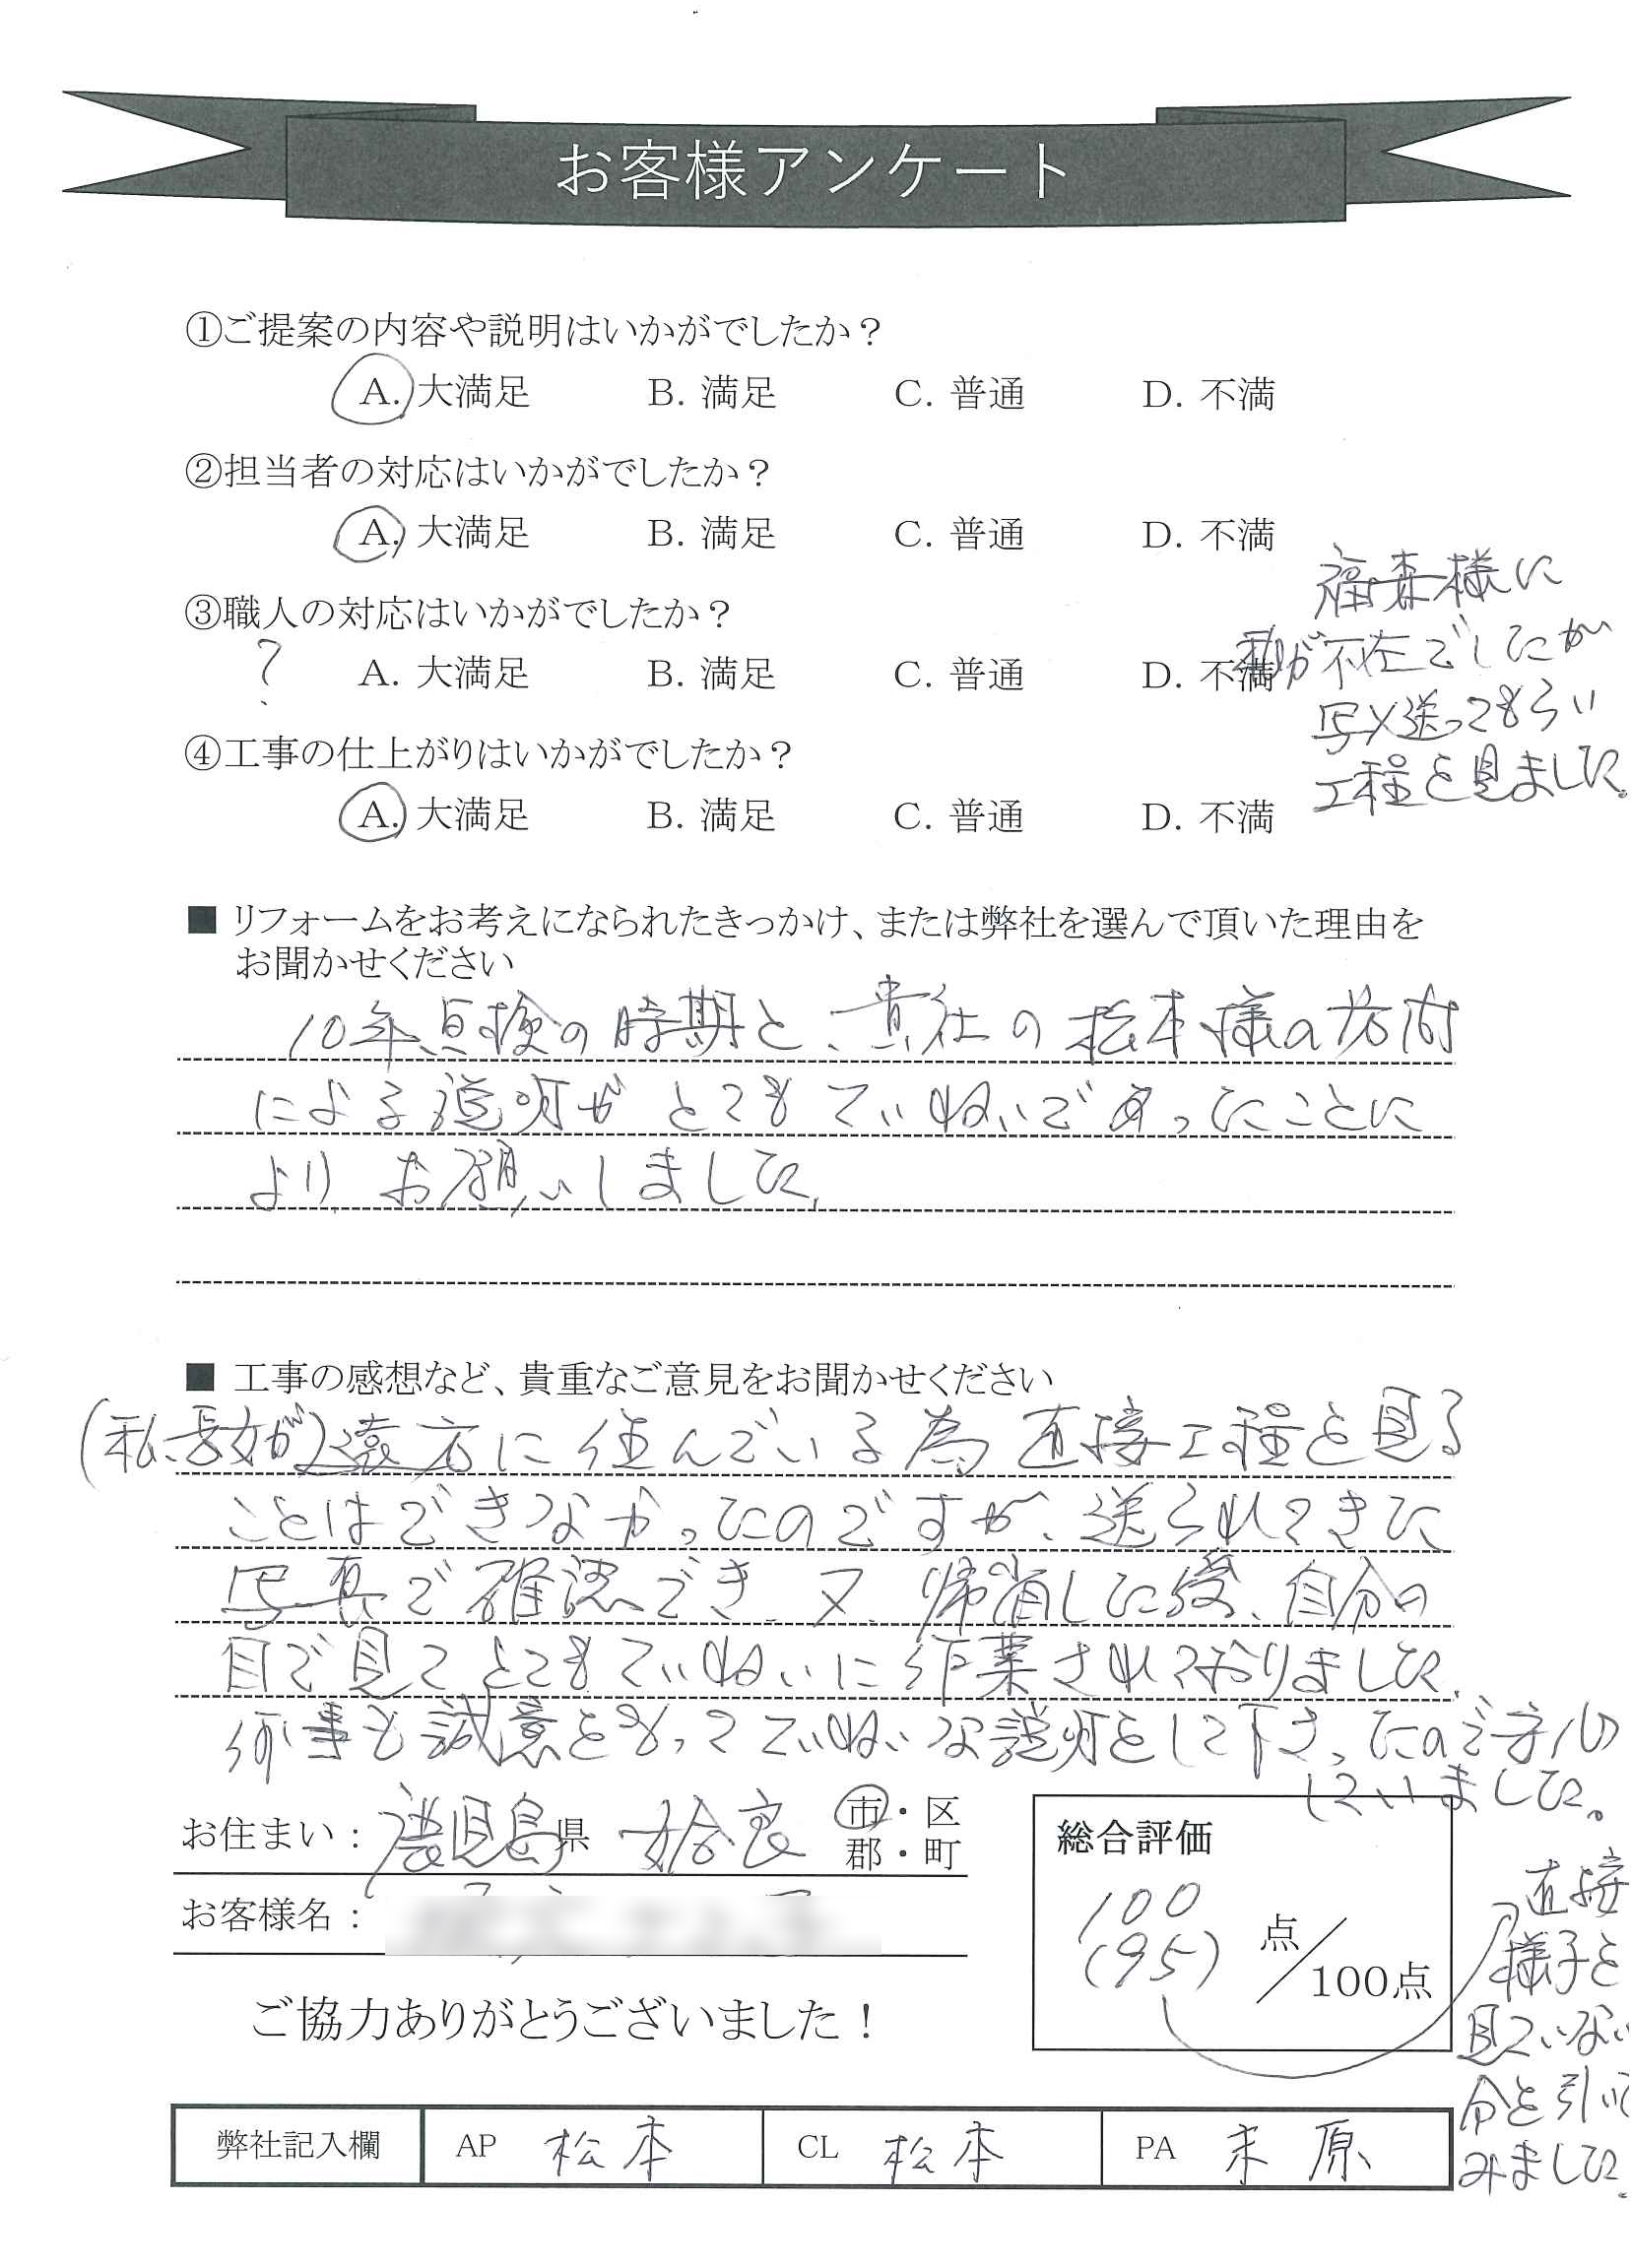 お客様アンケート
①ご提案の内容や説明はいかがでしたか？
A. 大満足 B. 満足 C. 普通 D. 不満
②担当者の対応はいかがでしたか？
A. 大満足 B. 満足 C. 普通 D. 不満
③職人の対応はいかがでしたか？
? A. 大満足 B. 満足 C. 普通 D. 不満
④工事の仕上がりはいかがでしたか？
A. 大満足 B. 満足 C. 普通 D. 不満
福森様に
私が不在でしたが
写メ送ってもらい
工程を見ました。
■ リフォームをお考えになられたきっかけ、または弊社を選んで頂いた理由を
お聞かせください
10年点検の時期と、貴社の松本様の訪問
による説明がとてもていねいであったことに
より、お願いしました。
■ 工事の感想など、貴重なご意見をお聞かせください
(私、長女が)遠方に住んでいる為 直接工程を見る
ことはできなかったのですが、送られてきた
写真で確認でき、又、帰省した後、自分の
目で見てとてもていねいに作業されておりました。
何事も誠意をもってていねいな説明をして下さったので安心
していました。
お住まい： 鹿児島県 姶良 市・区
郡・町
お客様名：
総合評価
100
(95) 点／100点
直接
様子を
見ていない
分を引いて
みました。
ご協力ありがとうございました！
弊社記入欄 AP 松本 CL 松本 PA 末原